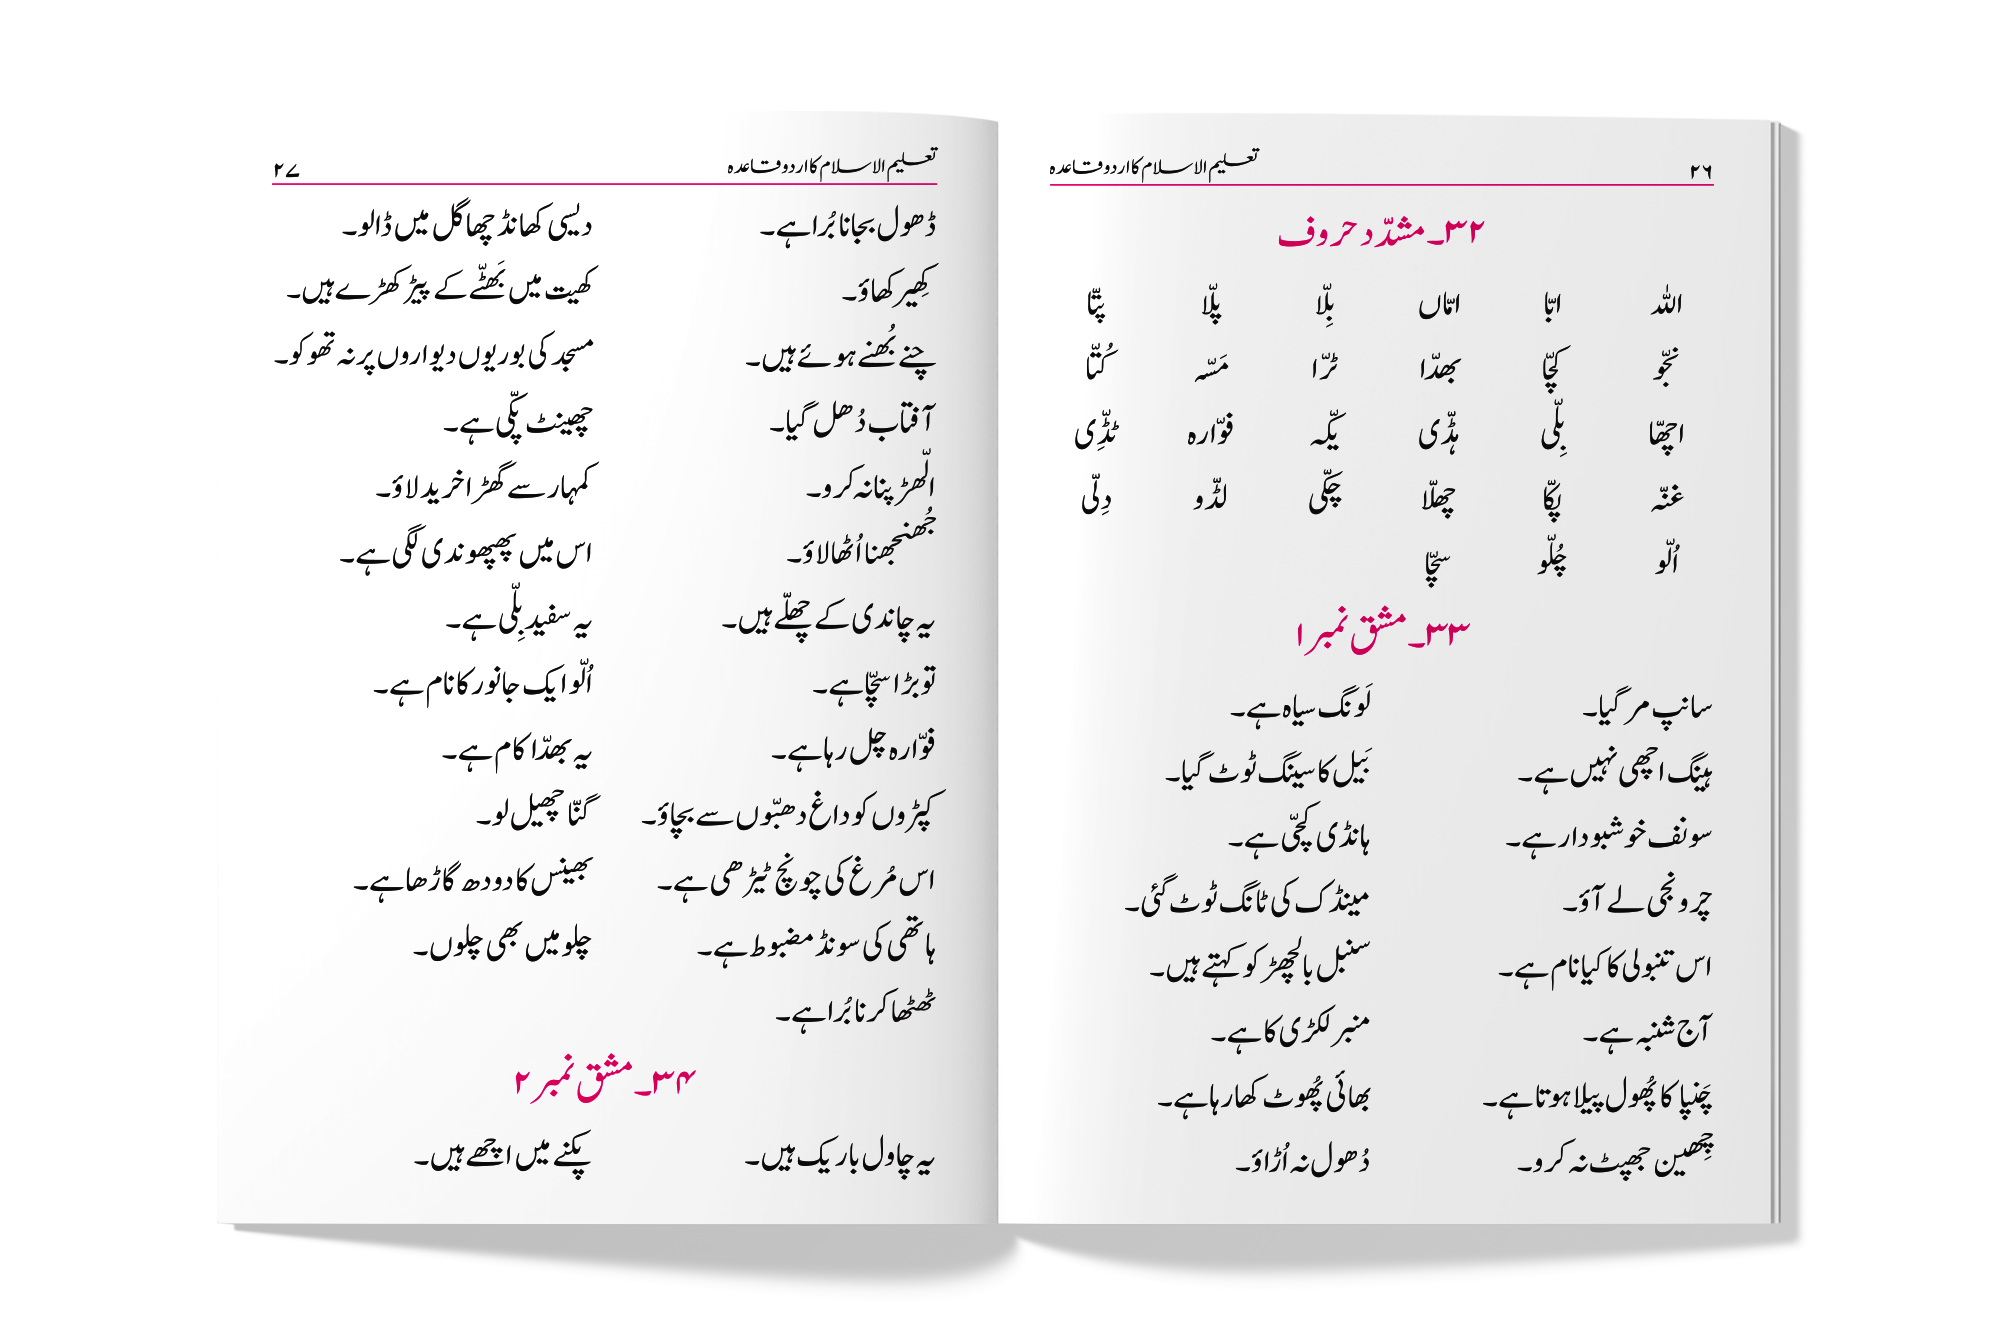 ۲۶ تعلیم الاسلام کا اردو قاعدہ
۳۲۔ مشدّد حروف
اللہ ابّا امّاں بِلّا پلّا پتّا
نجّو کچّا بھدّا ٹرّا مَسّہ کُتّا
اچھّا بِلّی ہڈّی یکّہ فوّارہ ٹڈِّی
غنّہ پکّا چھلّا چَکّی لڈّو دِلّی
اُلّو چُلّو سچّا
۳۳۔ مشق نمبر ۱
سانپ مر گیا۔ لَونگ سیاہ ہے۔
ہینگ اچھی نہیں ہے۔ بَیل کا سینگ ٹوٹ گیا۔
سونف خوشبودار ہے۔ ہانڈی کچّی ہے۔
چرونجی لے آؤ۔ مینڈک کی ٹانگ ٹوٹ گئی۔
اس تنبولی کا کیا نام ہے۔ سنبل بالچھڑ کو کہتے ہیں۔
آج شنبہ ہے۔ منبر لکڑی کا ہے۔
چَنپا کا پُھول پیلا ہوتا ہے۔ بھائی پُھوٹ کھا رہا ہے۔
چِھین جھپٹ نہ کرو۔ دُھول نہ اُڑاؤ۔
تعلیم الاسلام کا اردو قاعدہ ۲۷
ڈھول بجانا بُرا ہے۔ دیسی کھانڈ چھاگل میں ڈالو۔
کِھیر کھاؤ۔ کھیت میں بَھٹّے کے پیڑ کھڑے ہیں۔
چنے بُھنے ہوئے ہیں۔ مسجد کی بوریوں دیواروں پر نہ تھوکو۔
آفتاب دُھل گیا۔ چھینٹ پکّی ہے۔
الّھڑ پنا نہ کرو۔ کمہار سے گھڑا خرید لاؤ۔
جُھنجھنا اُٹھا لاؤ۔ اس میں پھپھوندی لگی ہے۔
یہ چاندی کے چھلّے ہیں۔ یہ سفید بِلّی ہے۔
تو بڑا سچّا ہے۔ اُلّو ایک جانور کا نام ہے۔
فوّارہ چل رہا ہے۔ یہ بھدّا کام ہے۔
کپڑوں کو داغ دھبّوں سے بچاؤ۔ گنّا چھیل لو۔
اس مُرغ کی چونچ ٹیڑھی ہے۔ بھینس کا دودھ گاڑھا ہے۔
ہاتھی کی سونڈ مضبوط ہے۔ چلو میں بھی چلوں۔
ٹھٹھا کرنا بُرا ہے۔
۳۴۔ مشق نمبر ۲
یہ چاول باریک ہیں۔ پکنے میں اچھے ہیں۔